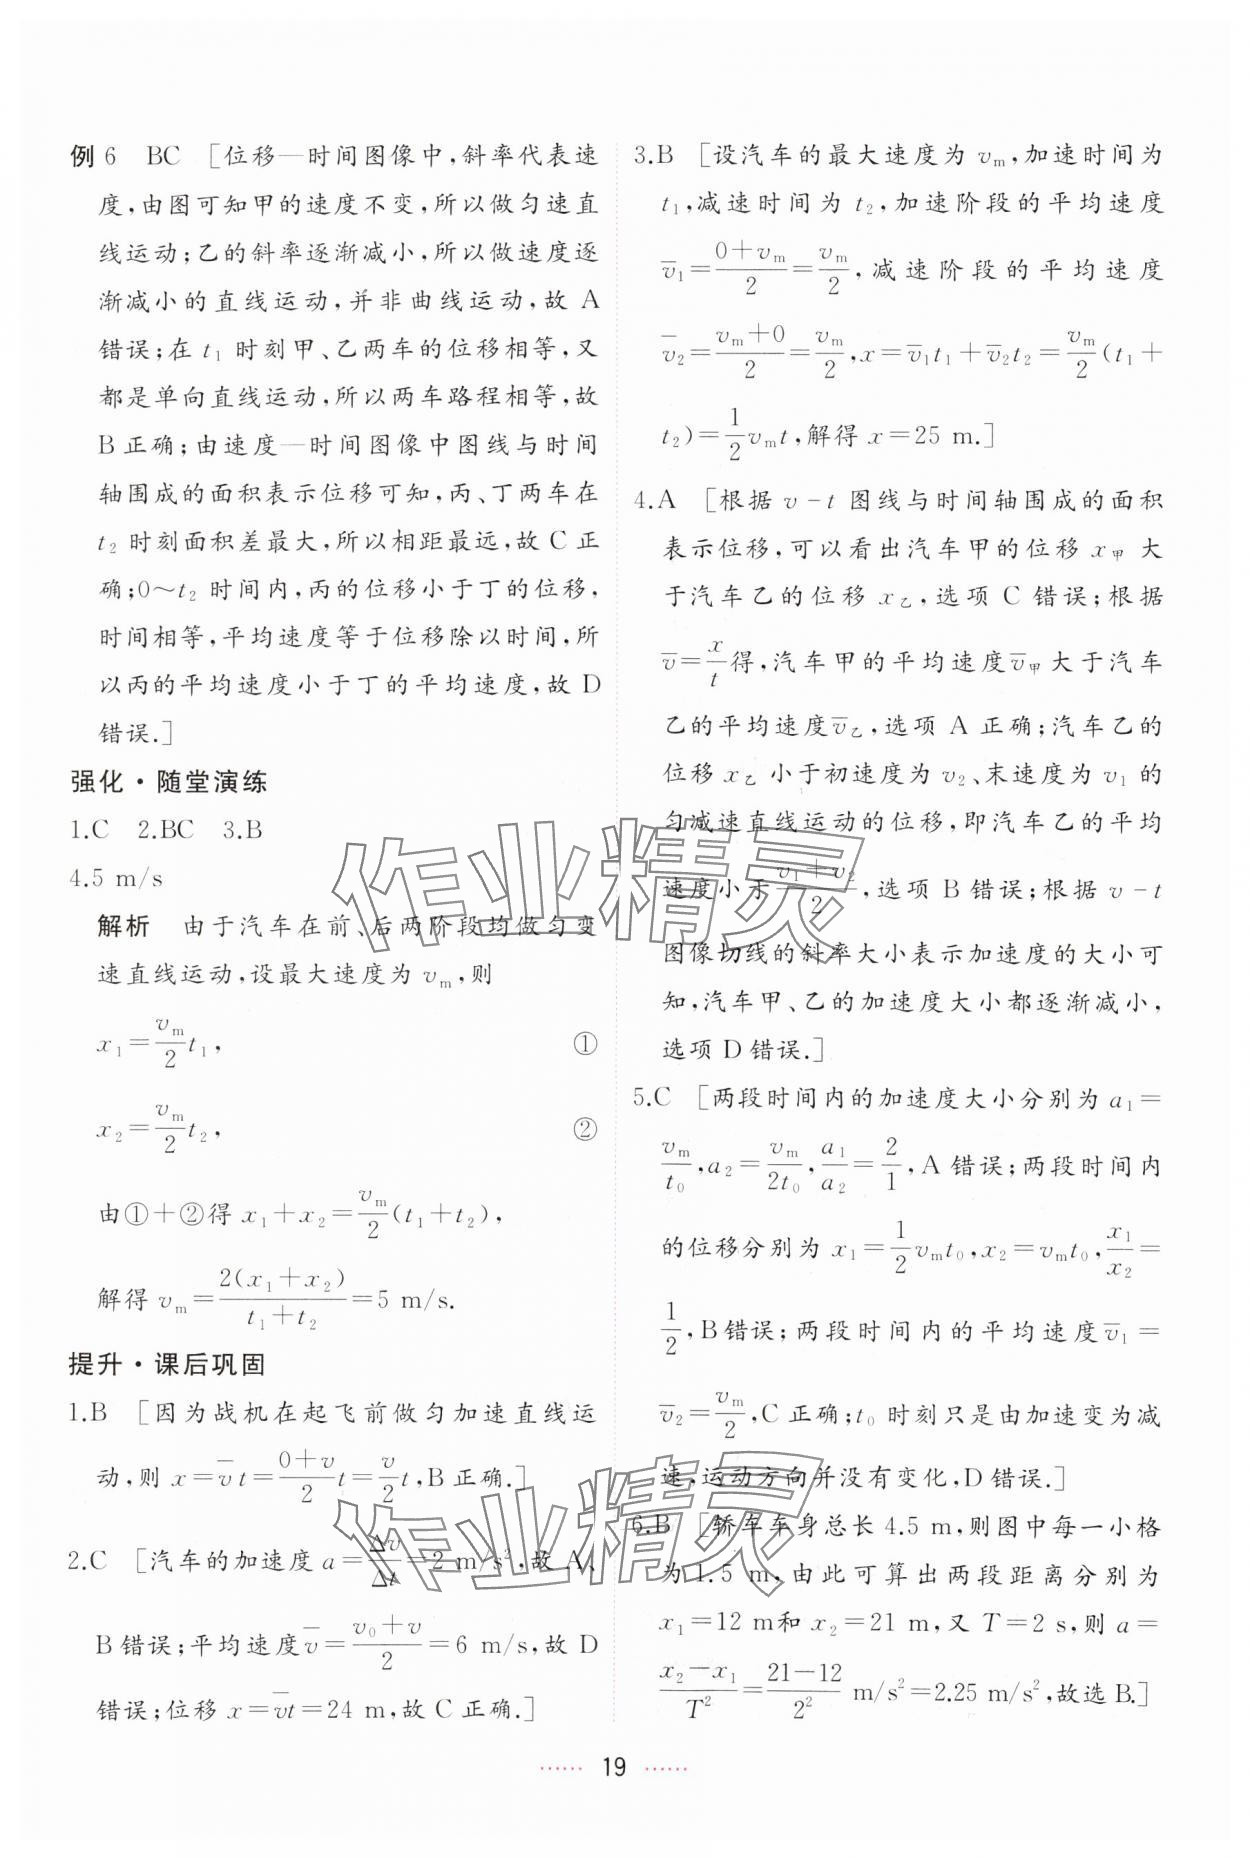 例 6　BC　[位移—时间图像中,斜率代表速
度,由图可知甲的速度不变,所以做匀速直
线运动;乙的斜率逐渐减小,所以做速度逐
渐减小的直线运动,并非曲线运动,故 A
错误;在 t₁ 时刻甲、乙两车的位移相等,又
都是单向直线运动,所以两车路程相等,故
B 正确;由速度—时间图像中图线与时间
轴围成的面积表示位移可知,丙、丁两车在
t₂ 时刻面积差最大,所以相距最远,故 C 正
确;0~t₂ 时间内,丙的位移小于丁的位移,
时间相等,平均速度等于位移除以时间,所
以丙的平均速度小于丁的平均速度,故 D
错误.]
强化·随堂演练
1.C　2.BC　3.B
4.5 m/s
解析　由于汽车在前、后两阶段均做匀变
速直线运动,设最大速度为 vₘ,则
x₁=vₘ/2 t₁,　①
x₂=vₘ/2 t₂,　②
由①+②得 x₁+x₂=vₘ/2(t₁+t₂),
解得 vₘ=2(x₁+x₂)/(t₁+t₂)=5 m/s.
提升·课后巩固
1.B　[因为战机在起飞前做匀加速直线运
动,则 x=v̄t=(0+v)/2 t=v/2 t,B 正确.]
2.C　[汽车的加速度 a=Δv/Δt=2 m/s²,故 A、
B 错误;平均速度v̄=(v₀+v)/2=6 m/s,故 D
错误;位移 x=v̄t=24 m,故 C 正确.]
3.B　[设汽车的最大速度为 vₘ,加速时间为
t₁,减速时间为 t₂,加速阶段的平均速度
v̄₁=(0+vₘ)/2=vₘ/2,减速阶段的平均速度
v̄₂=(vₘ+0)/2=vₘ/2,x=v̄₁t₁+v̄₂t₂=vₘ/2(t₁+
t₂)=1/2 vₘt,解得 x=25 m.]
4.A　[根据 v-t 图线与时间轴围成的面积
表示位移,可以看出汽车甲的位移 x甲 大
于汽车乙的位移 x乙,选项 C 错误;根据
v̄=x/t得,汽车甲的平均速度v̄甲大于汽车
乙的平均速度v̄乙,选项 A 正确;汽车乙的
位移 x乙 小于初速度为 v₂、末速度为 v₁ 的
匀减速直线运动的位移,即汽车乙的平均
速度小于(v₁+v₂)/2,选项 B 错误;根据 v-t
图像切线的斜率大小表示加速度的大小可
知,汽车甲、乙的加速度大小都逐渐减小,
选项 D 错误.]
5.C　[两段时间内的加速度大小分别为 a₁=
vₘ/t₀,a₂=vₘ/2t₀,a₁/a₂=2/1,A 错误;两段时间内
的位移分别为 x₁=1/2 vₘt₀,x₂=vₘt₀,x₁/x₂=
1/2,B 错误;两段时间内的平均速度v̄₁=
v̄₂=vₘ/2,C 正确;t₀ 时刻只是由加速变为减
速,运动方向并没有变化,D 错误.]
6.B　[轿车车身总长 4.5 m,则图中每一小格
为 1.5 m,由此可算出两段距离分别为
x₁=12 m和 x₂=21 m,又 T=2 s,则 a=
(x₂-x₁)/T²=(21-12)/2² m/s²=2.25 m/s²,故选 B.]
作业精灵
作业精灵
······ 19 ······